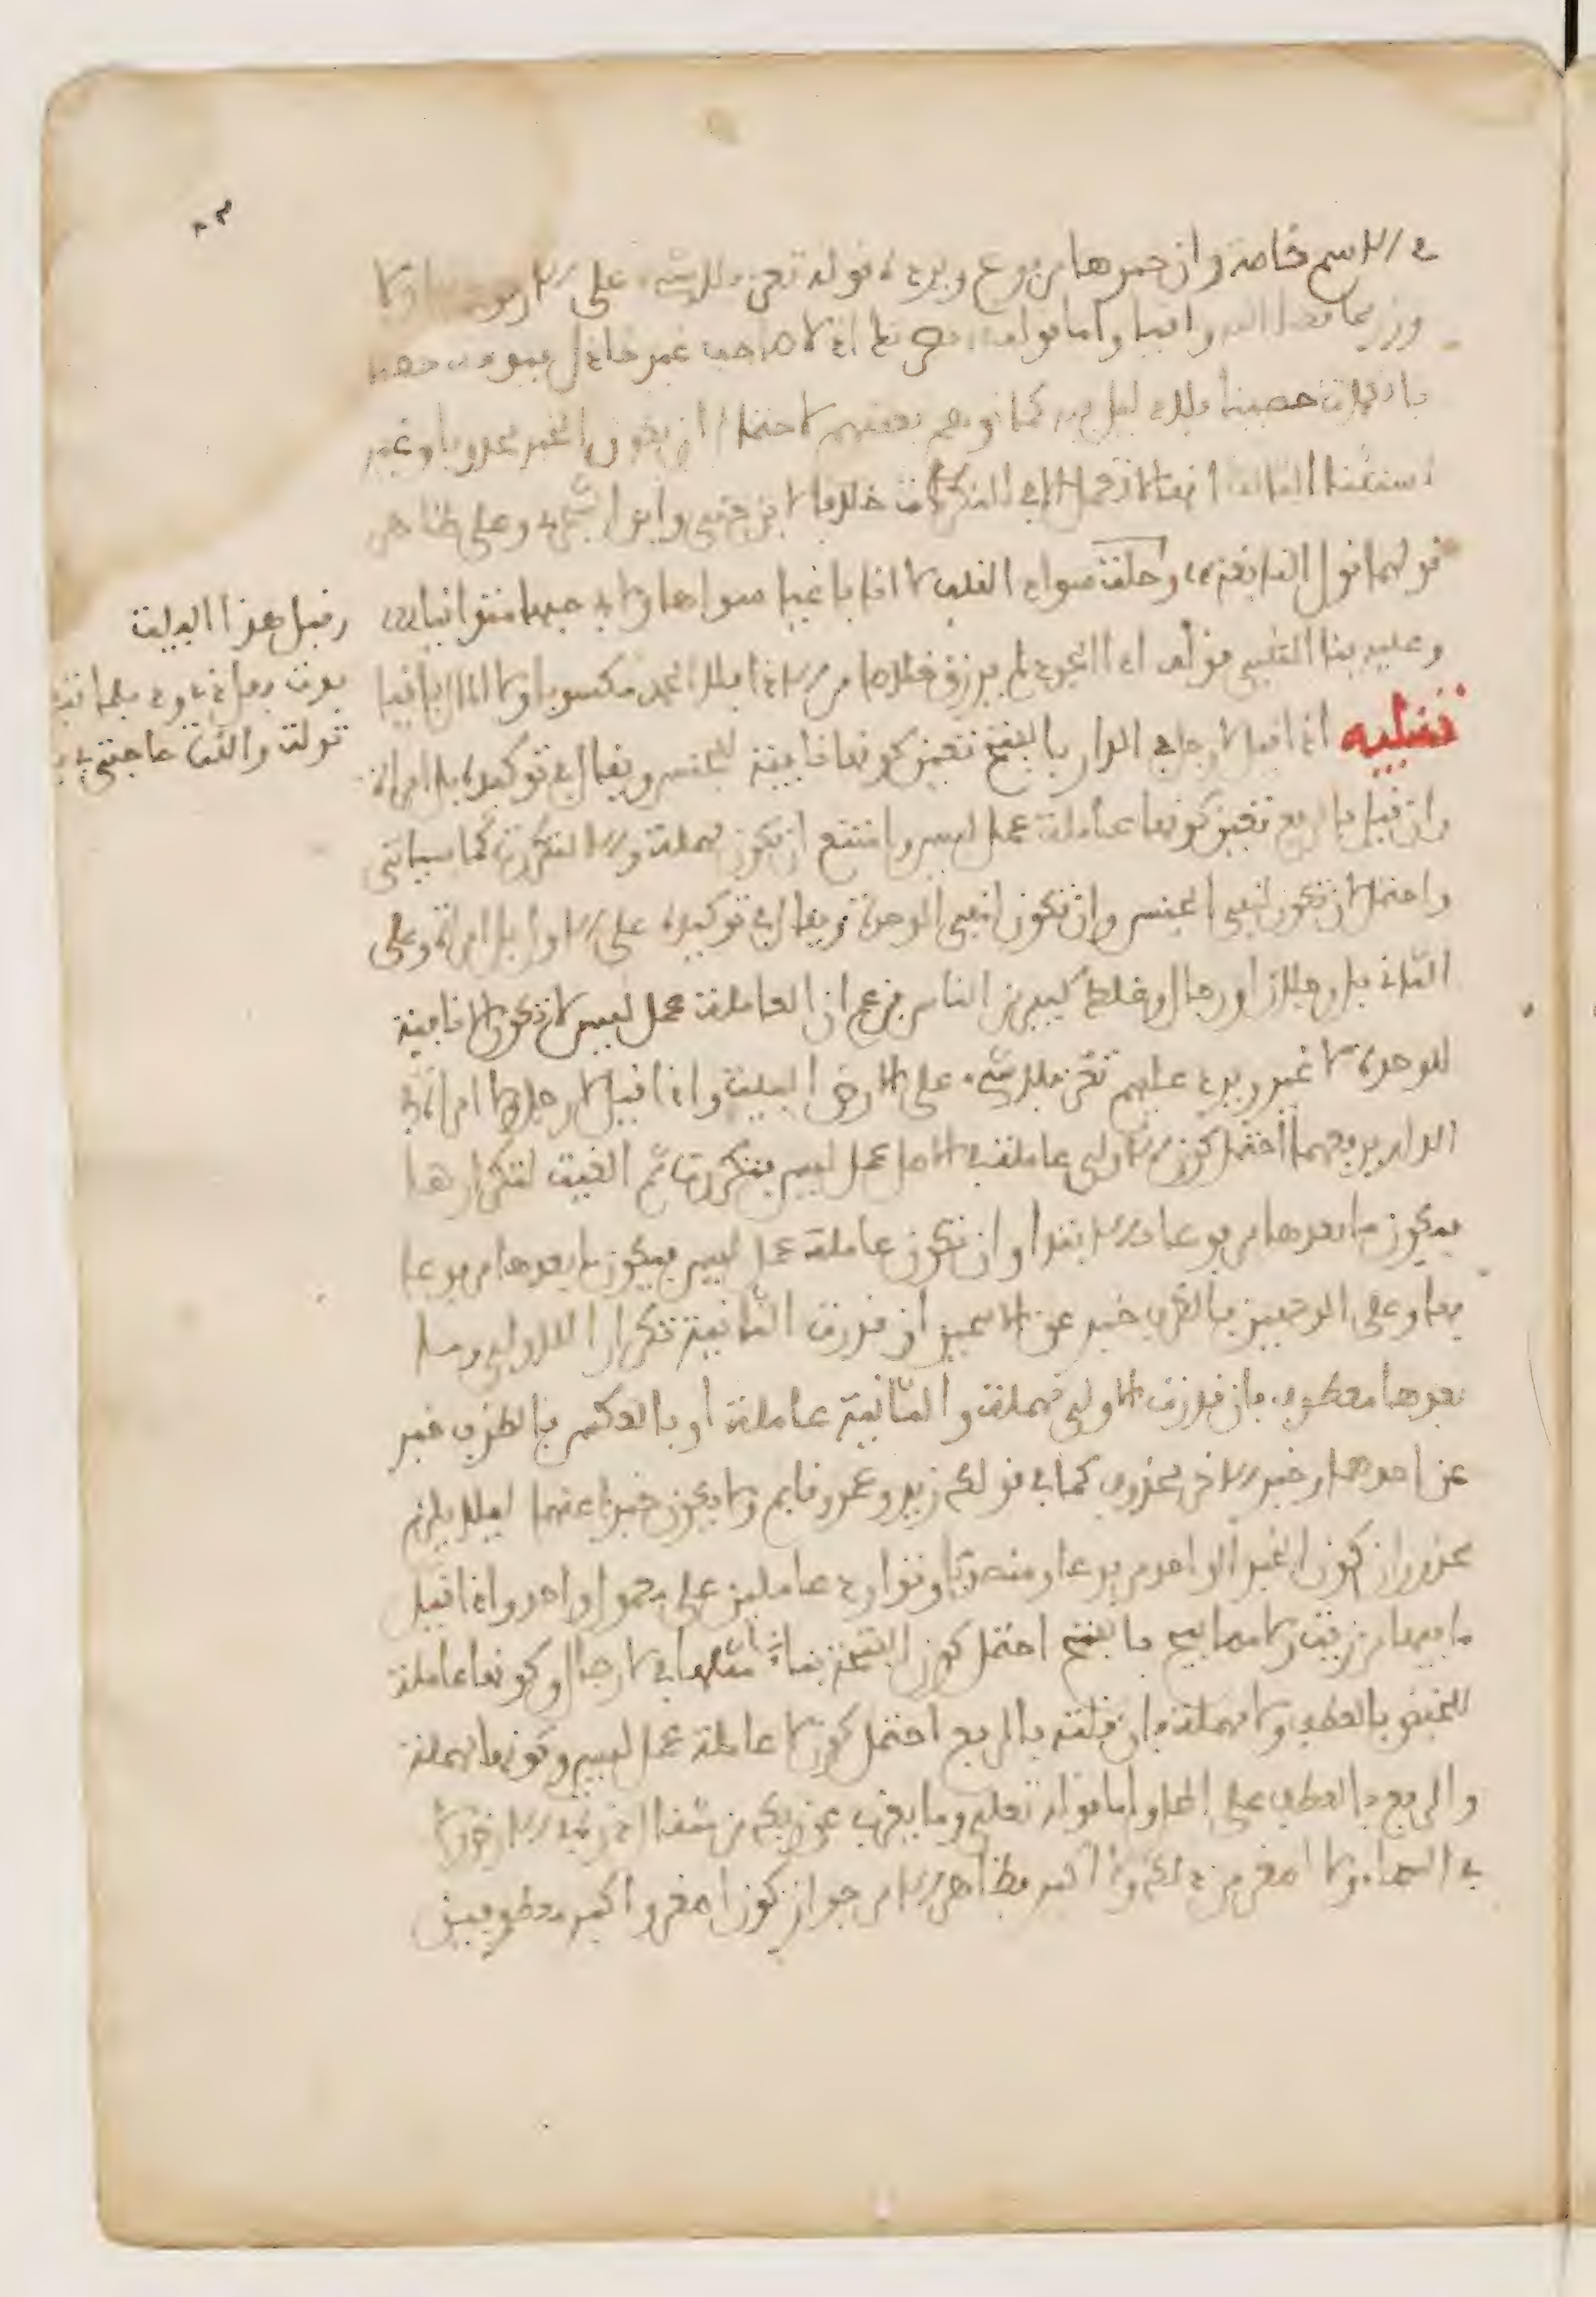 في الاسم خاصة وان خبرها مرفوع ويرده قوله تعز فلا شيء على الارض باقيا ولا
وزر مما قضى الله واقيا واما قوله نصرتك اذ لا صاحب غير خاذل فبوئت حصنا
بالكماة حصينا فلا دليل فيه كما توهم بعضهم لاحتمال ان يكون الخبر محذوفا وغير
استثناء الثالث انها لا تعمل الا في النكرات خلافا لابن جني وابن الشجري وعلى ظاهر
قولهما قول النابغة وحلت سواد القلب لا انا باغيا سواها ولا في حبها متوانيا
وعليه بنا المتنبي قوله اذا الجود لم يرزق خلاصا من الاذا فلا الحمد مكسوبا ولا المال باقيا
تنبيه اذا قيل لا رجل في الدار بالفتح تعين كونها نافية للجنس ويقال في توكيده بل امراة
وان قيل بالرفع تعين كونها عاملة عمل ليس وامتنع ان تكون مهملة والا لتكررت كما سياتي
واحتمل ان تكون لنفي الجنس وان تكون لنفي الوحدة ويقال في توكيده على الاول بل امراة وعلى
الثاني بل رجلان او رجال وغلط كثير من الناس فزعم ان العاملة عمل ليس لا تكون الا نافية
للوحدة لا غير ويرد عليهم تعز فلا شيء على الارض البيت واذا قيل لا رجل ولا امراة في
الدار برفعهما احتمل كون الاولى عاملة في الاصل عمل ليس فتكررت ثم الغيت لتكرارها
فيكون ما بعدها مرفوعا بالابتدا وان تكون عاملة عمل ليس فيكون ما بعدها مرفوعا
بها وعلى الوجهين فالظرف خبر عن الاسمين ان قدرت الثانية تكرارا للاولى وما
بعدها معطوف فان قدرت الاولى مهملة والثانية عاملة او بالعكس فالظرف خبر
عن احدهما وخبر الاخر محذوف كما في قولك زيد وعمرو قايم ولا يكون خبرا عنهما ليلا يلزم
محذوران كون الخبر الواحد مرفوعا ومنصوبا وتوارد عاملين على معمول واحد واذا قيل
ما فيها من زيت ولا مصابيح بالفتح احتمل كون الفتحة بناء مثلها في لا رجال وكونها عاملة
للخفض بالعطف ولا مهملة فان قلته بالرفع احتمل كون لا عاملة عمل ليس وكونها مهملة
والرفع بالعطف على المحل واما قوله تعلى وما يعزب عن ربك من مثقال ذرة في الارض ولا
في السماء ولا اصغر من ذلك ولا اكبر فظاهر الامر جواز كون اصغر واكبر معطوفين
وقبل هذا البيت
تولت حاجتي